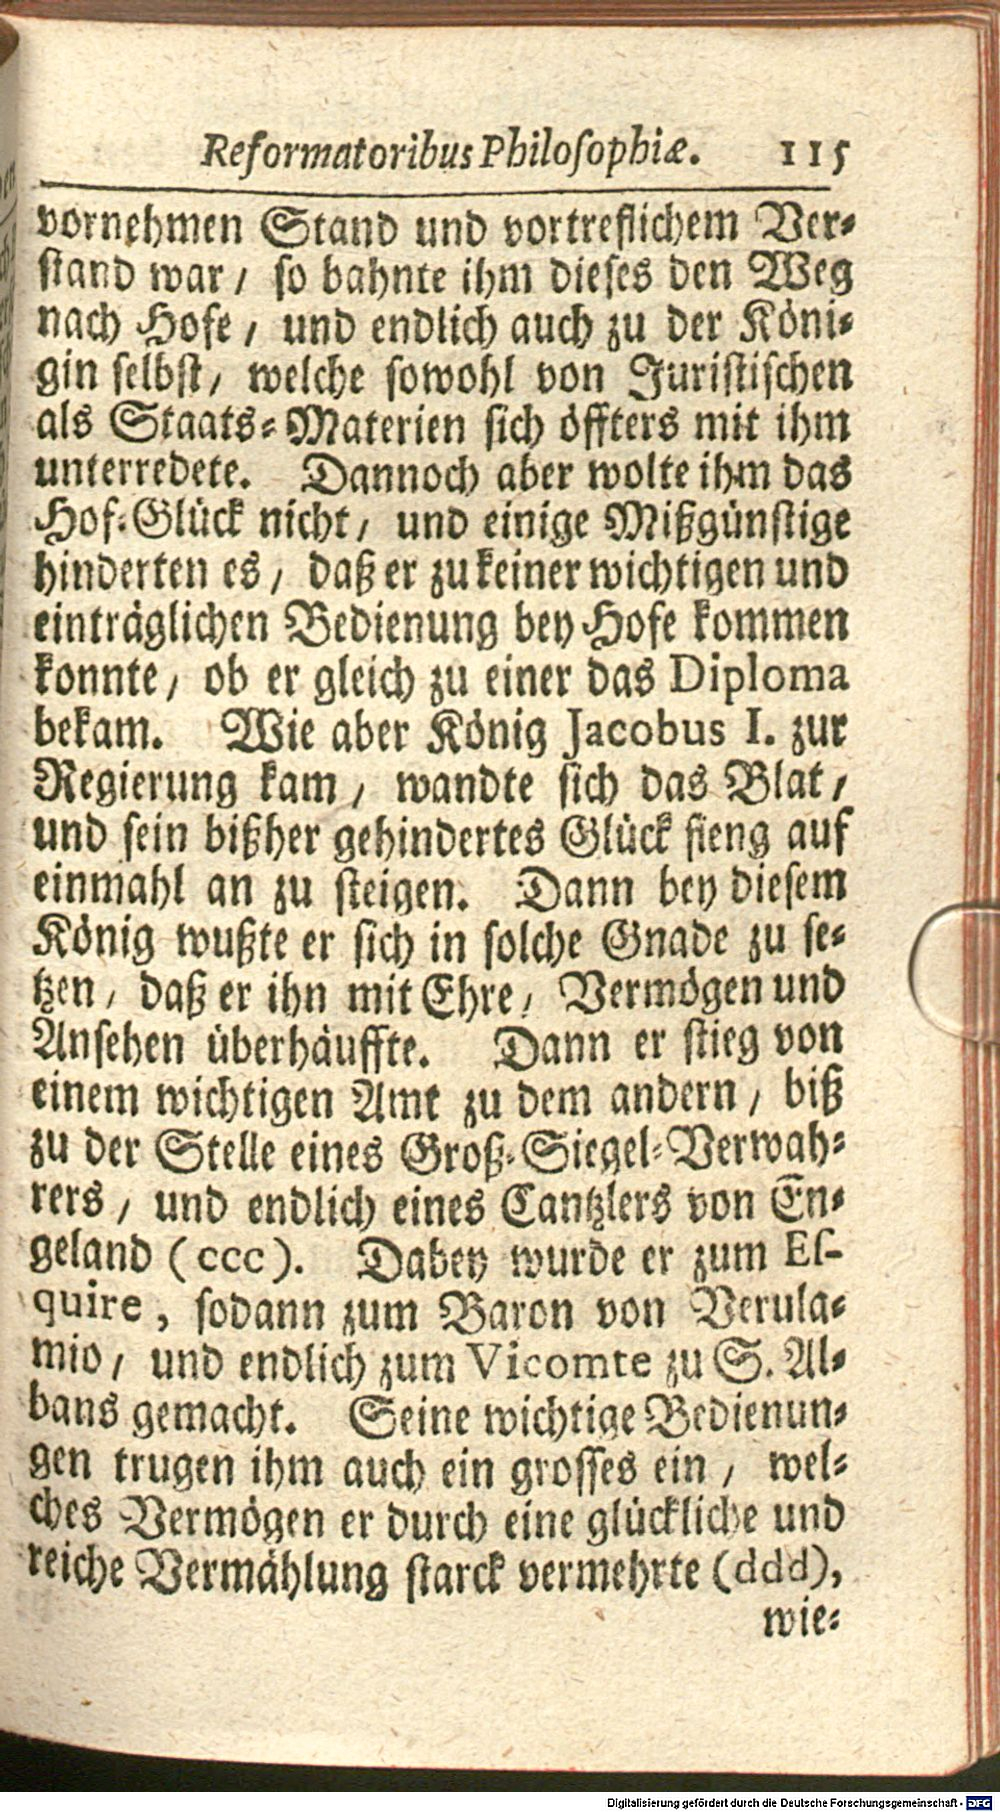 Reformatoribus Philosophiæ. 115
vornehmen Stand und vortreflichem Ver-
stand war / so bahnte ihm dieses den Weg
nach Hofe / und endlich auch zu der Köni-
gin selbst / welche sowohl von Juristischen
als Staats-Materien sich öffters mit ihm
unterredete. Dannoch aber wolte ihm das
Hof-Glück nicht / und einige Mißgünstige
hinderten es / daß er zu keiner wichtigen und
einträglichen Bedienung bey Hofe kommen
konnte / ob er gleich zu einer das Diploma
bekam. Wie aber König Jacobus I. zur
Regierung kam / wandte sich das Blat /
und sein bißher gehindertes Glück fieng auf
einmahl an zu steigen. Dann bey diesem
König wußte er sich in solche Gnade zu se-
tzen / daß er ihn mit Ehre / Vermögen und
Ansehen überhäuffte. Dann er stieg von
einem wichtigen Amt zu dem andern / biß
zu der Stelle eines Groß-Siegel-Verwah-
rers / und endlich eines Cantzlers von En-
geland (ccc). Dabey wurde er zum Es-
quire, sodann zum Baron von Verula-
mio / und endlich zum Vicomte zu S. Al-
bans gemacht. Seine wichtige Bedienun-
gen trugen ihm auch ein grosses ein / wel-
ches Vermögen er durch eine glückliche und
reiche Vermählung starck vermehrte (ddd),
wie-
Digitalisierung gefördert durch die Deutsche Forschungsgemeinschaft - DFG